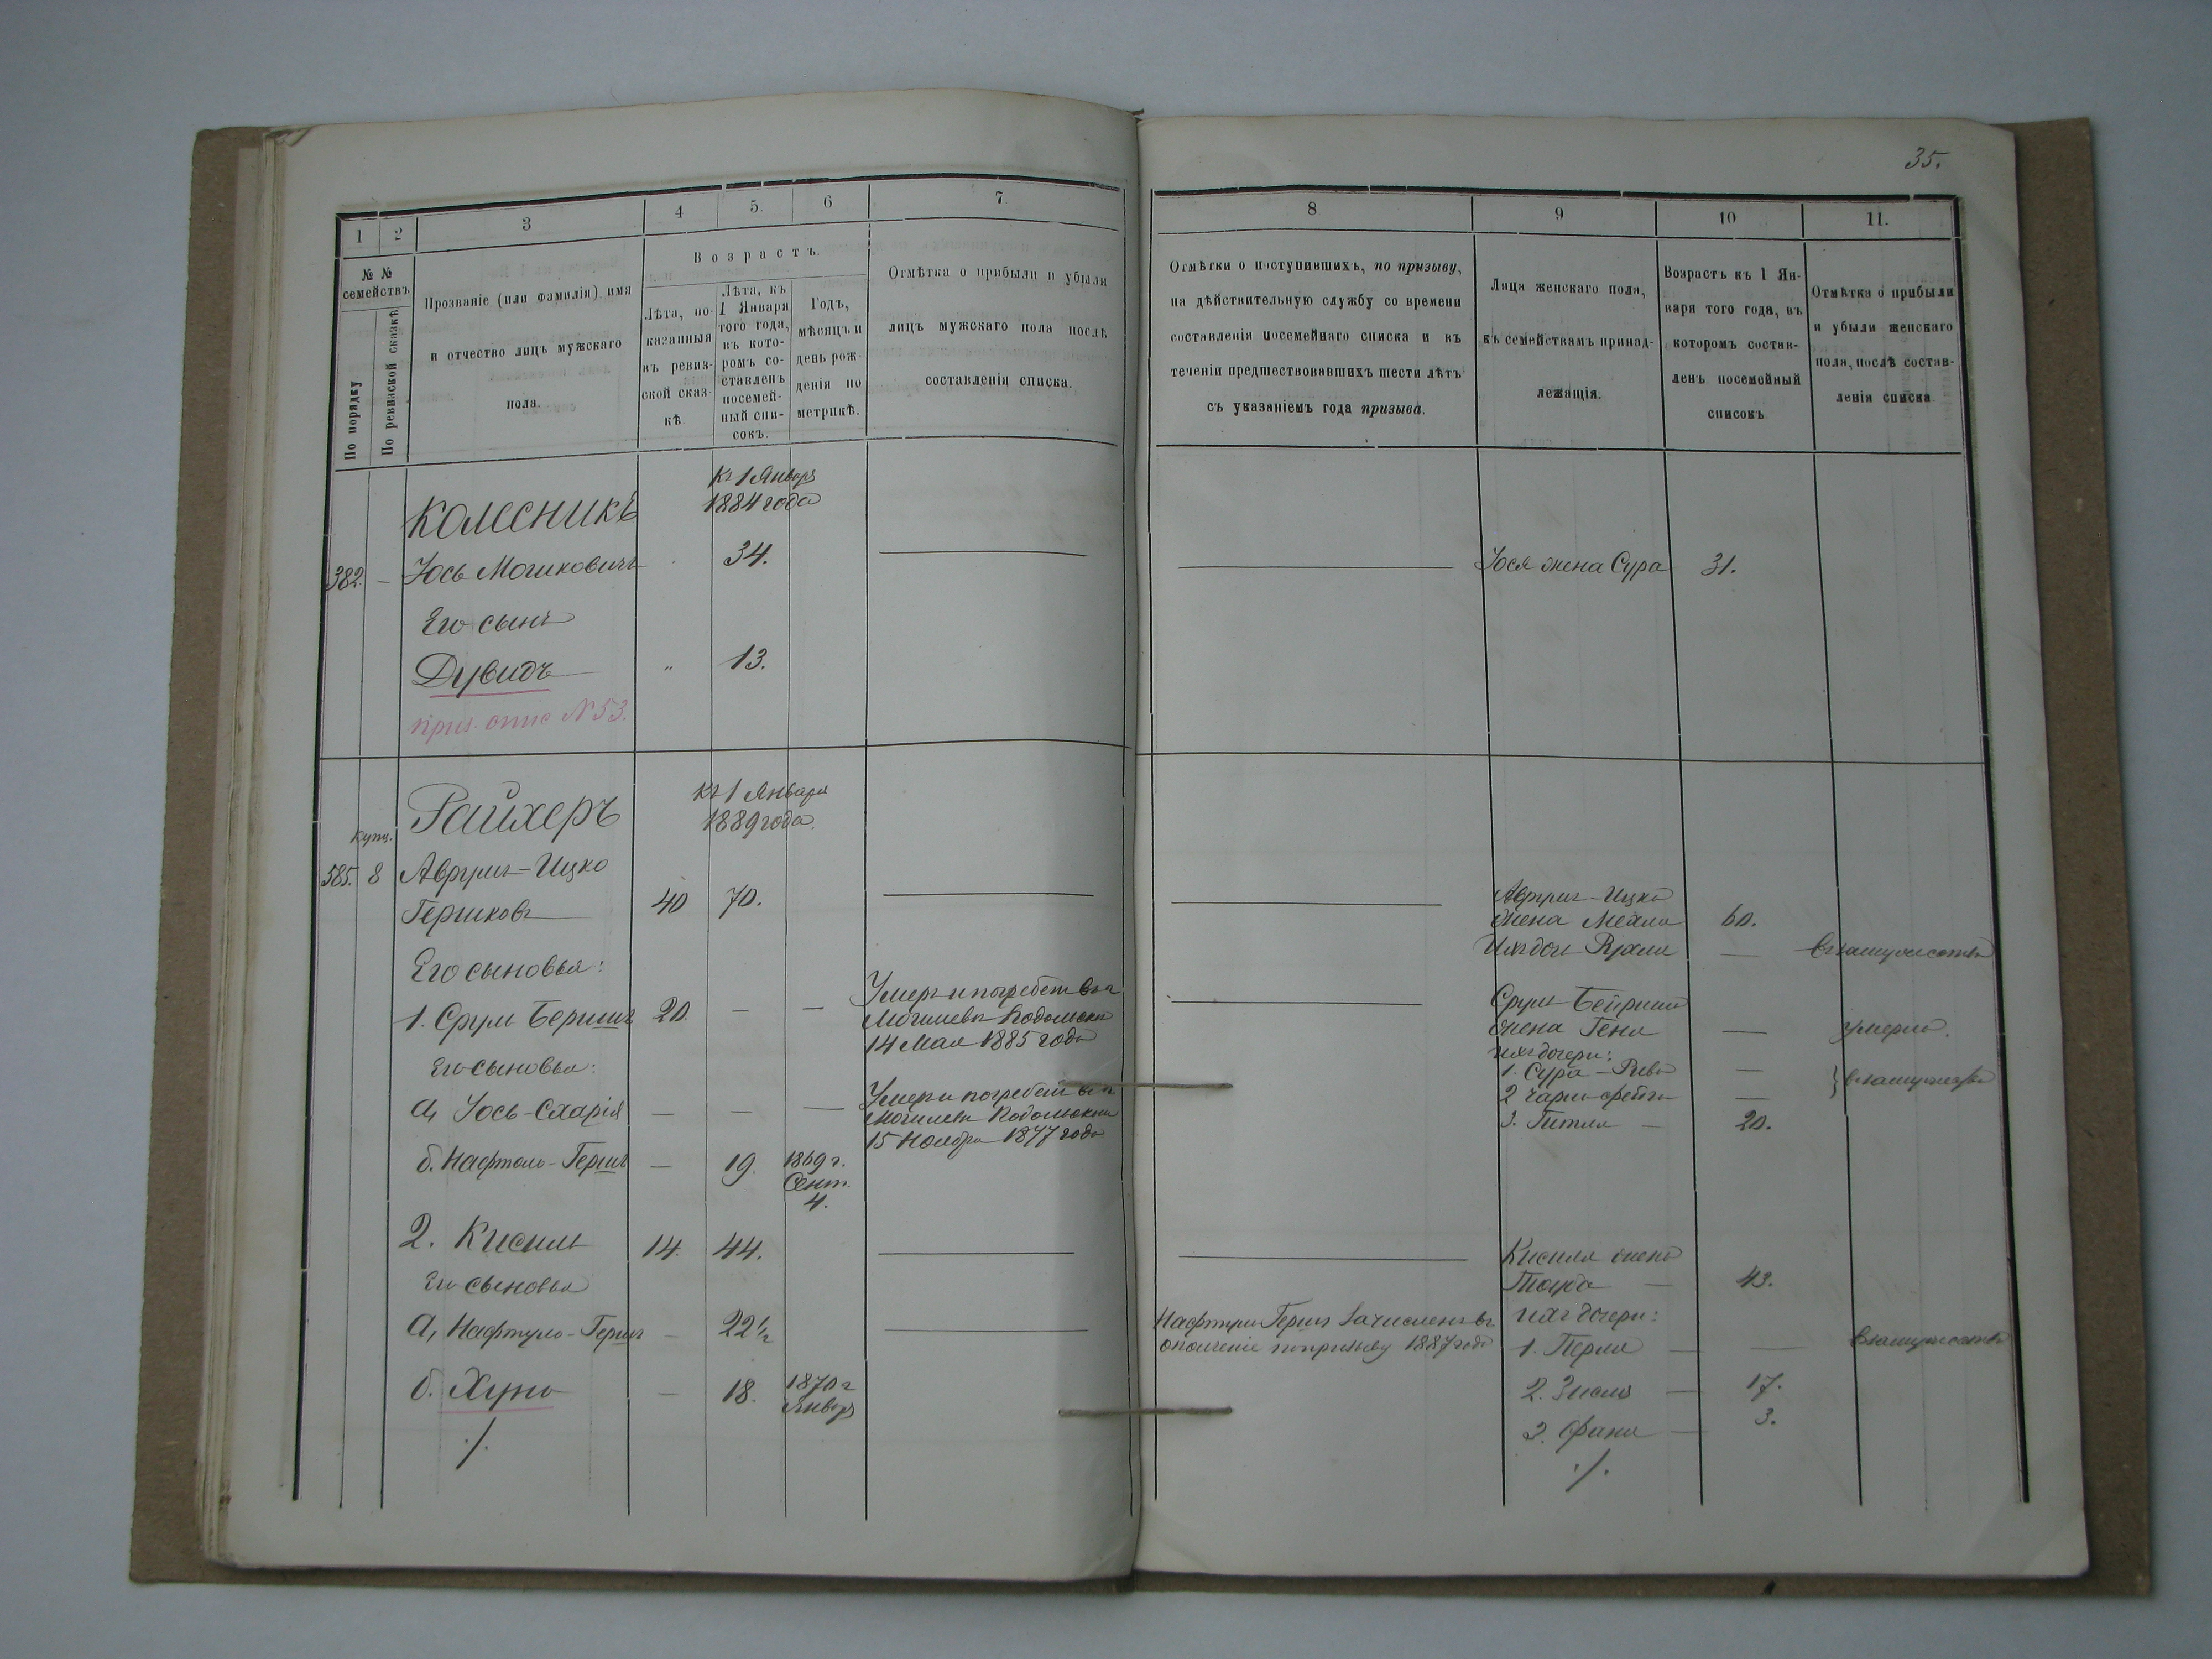 35.
1
2
3
4
5.
6
7
8
9
10
11.
№ №
семействъ
По порядку
По ревизской сказкѣ
Прозваніе (или фамилія), имя
и отчество лицъ мужскаго
пола.
Возрастъ.
Лѣта, по-
казанныя
въ ревиз-
ской сказ-
кѣ.
Лѣта, къ
1 Января
того года,
въ кото-
ромъ со-
ставленъ
посемей-
ный спи-
сокъ.
Годъ,
мѣсяцъ и
день рож-
денія по
метрикѣ.
Отмѣтка о прибыли и убыли
лицъ мужскаго пола послѣ
составленія списка.
Отмѣтки о поступившихъ, по призыву,
на дѣйствительную службу со времени
составленія посемейнаго списка и въ
теченіи предшествовавшихъ шести лѣтъ
съ указаніемъ года призыва.
Лица женскаго пола,
къ семействамъ принад-
лежащія.
Возрастъ къ 1 Ян-
варя того года, въ
которомъ состав-
ленъ посемейный
списокъ
Отмѣтка о прибыли
и убыли женскаго
пола, послѣ состав-
ленія списка
Колесникъ
Къ 1 Января
1884 года
382. — Іось Мошковичъ 34.
Іося жена Сура 31.
Его сынъ
Дувидъ „ 13.
приз. спис № 53.
Райхеръ
Къ 1 Января
1889 года.
Купц.
585. 8 Аврумъ-Ицко
Гершковъ 40 70.
Аврумъ-Ицко
жена 60.
Ихъ дочь — въ замужествѣ
Его сыновья:
1. Срулъ Бершъ 20. — —
Умеръ и погребенъ въ г.
Могилевѣ Подольском
14 Мая 1885 года
Срулъ
жена Геня — умерла.
ихъ дочери:
1. Сура-Рива —
2 —
} въ замужествѣ
3. Гитля — 20.
Его сыновья:
а, Іось-Схарія — — —
Умеръ и погребенъ въ г.
Могилевѣ Подольском
15 Ноября 1877 года
б. Нафтоло-Гершъ — 19. 1869 г.
Сент.
4.
2. Кисиль 14. 44.
Кисиля жена
— 43.
Его сыновья
а, Нафтуло-Гершъ — 22½
Гершъ зачисленъ въ
ополченіе по призыву 1887 года
ихъ дочери:
1. Перля — — въ замужествѣ
б. Хуно — 18. 1870 г
Январ
2. — 17.
3. Фаня — 3.
./.
./.